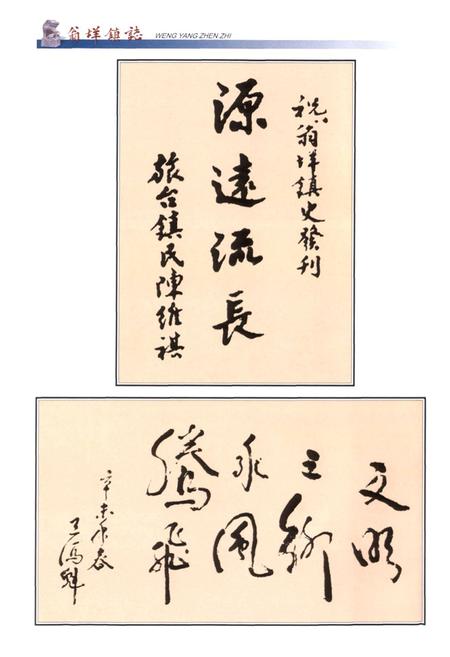 翁垟鎮誌
WENG YANG ZHEN ZHI
祝翁垟鎮史發刊
源遠流長
旅台鎮民陳維祺
文明
之鄉
永風
騰飛
辛未年春